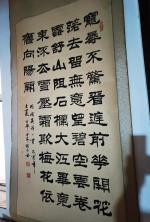 寵辱不驚看庭前華開花
落去留無意望碧空雲卷
雲舒山阻石攔大江畢竟
東流去雪壓霜欺梅花依
舊向陽開